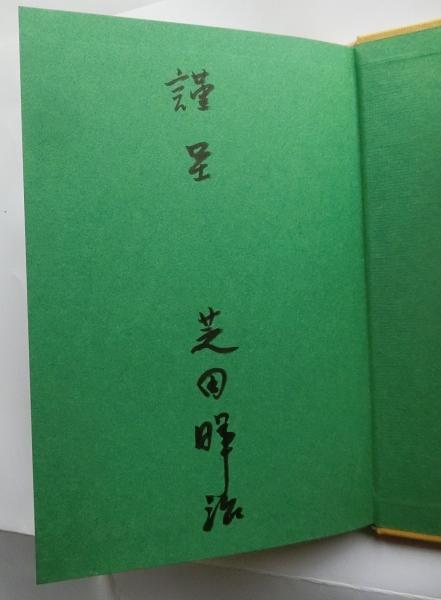 謹呈
芝田暉治